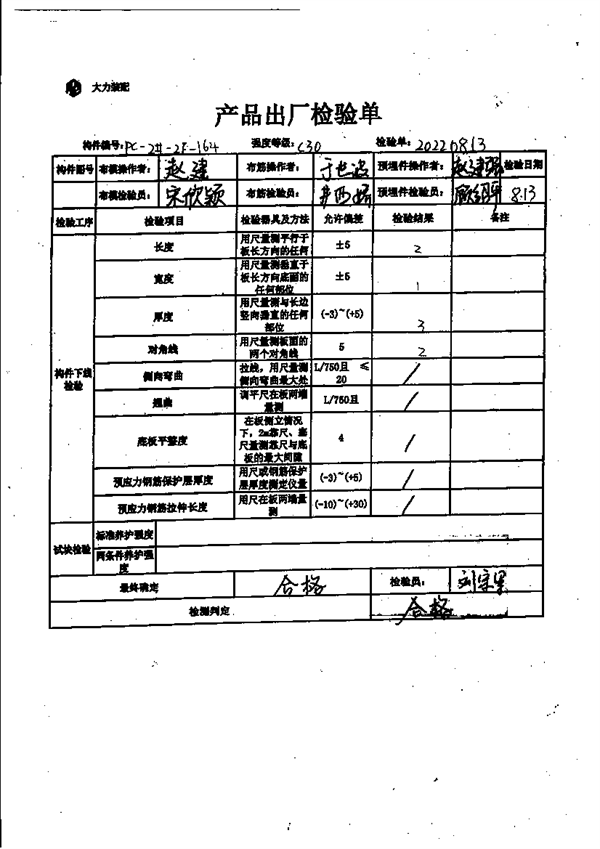 大力装配
产品出厂检验单
构件编号: PC-2#-2F-164 强度等级: C30 检验单: 20220813
构件图号 布模操作者: 赵建 布筋操作者: 预埋件操作者: 检验日期
布模检验员: 宋欣颖 布筋检验员: 预埋件检验员: 8.13
检验工序 检验项目 检验器具及方法 允许偏差 检验结果 备注
构件下线检验
长度 用尺量测平行于板长方向的任何 ±5 2
宽度 用尺量测垂直于板长方向底面的任何部位 ±5 1
厚度 用尺量测与长边竖向垂直的任何部位 (-3)~(+5) 3
对角线 用尺量测板面的两个对角线 5 2
侧向弯曲 拉线,用尺量测侧向弯曲最大处 L/750且 ≤20 /
翘曲 调平尺在板两端量测 L/750且 /
底板平整度 在板侧立情况下,2m靠尺、塞尺量测靠尺与底板的最大间隙 4 /
预应力钢筋保护层厚度 用尺或钢筋保护层厚度测定仪量 (-3)~(+5) /
预应力钢筋拉伸长度 用尺在板两端量测 (-10)~(+30) /
试块检验 标准养护强度
同条件养护强度
最终确定 合格 检验员:
检测判定 合格